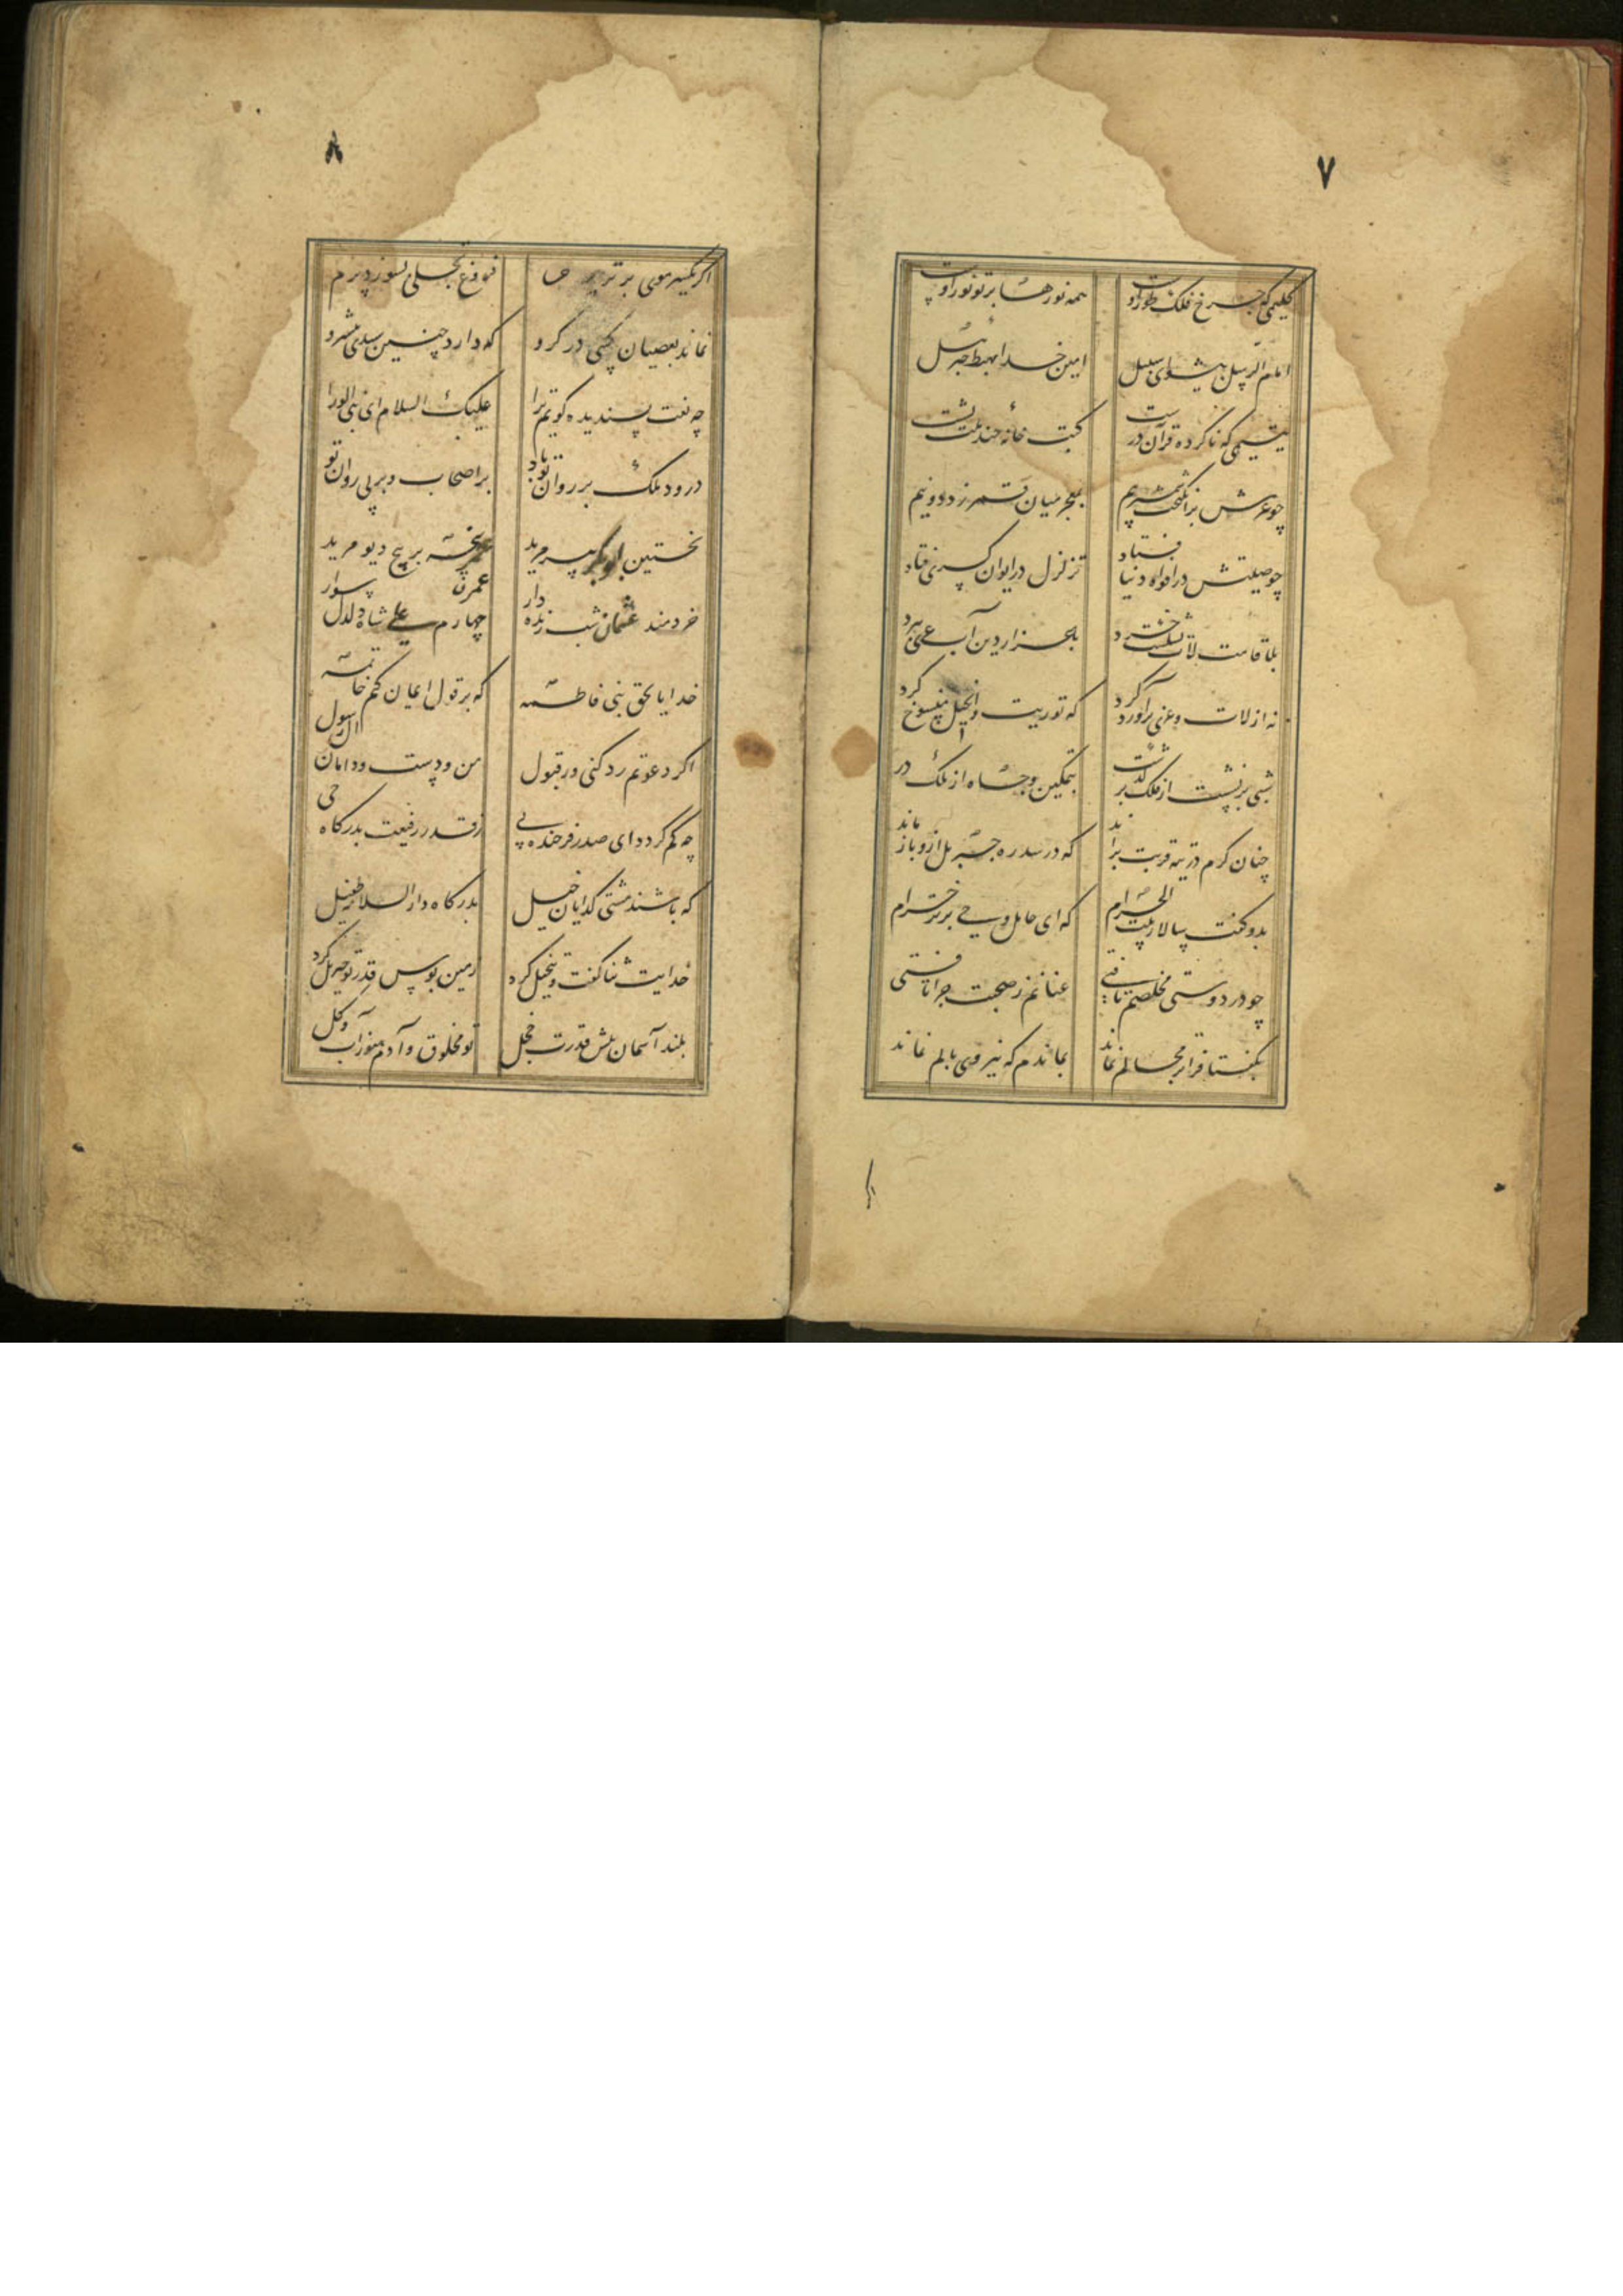 ۷
کلیمی که چرخ فلک طور اوست همه نورها پرتو نور اوست
امام الرسل پیشوای سبیل امین خدا مهبط جبرئیل
یتیمی که ناکرده قرآن درست کتب خانهٔ چند ملت بشست
چو عزمش برآهیخت شمشیر بیم بمعجز میان قمر زد دو نیم
چو صیتش در افواه دنیا فتاد تزلزل در ایوان کسری فتاد
بلا قامت لات بشکست خرد باعزاز دین آب عزی ببرد
نه از لات و عزی برآورد گرد که توریت و انجیل منسوخ کرد
شبی برنشست از فلک برگذشت بتمکین و جاه از ملک درگذشت
چنان گرم در تیه قربت براند که در سدره جبریل ازو باز ماند
بدو گفت سالار بیت الحرام که ای حامل وحی برتر خرام
چو در دوستی مخلصم یافتی عنانم ز صحبت چرا تافتی
بگفتا فراتر مجالم نماند بماندم که نیروی بالم نماند
۸
اگر یکسر موی برتر پرم فروغ تجلی بسوزد پرم
نماند بعصیان کسی در گرو که دارد چنین سیدی پیشرو
چه نعت پسندیده گویم ترا علیک السلام ای نبی الورا
درود ملک بر روان تو باد بر اصحاب و بر پی روان تو
نخستین ابوبکر پیر مرید عمر پنجه بر پیچ دیو مرید
خردمند عثمان شب زنده دار چهارم علی شاه دلدل سوار
خدایا بحق بنی فاطمه که بر قول ایمان کنم خاتمه
اگر دعوتم رد کنی ور قبول من و دست و دامان آل رسول
چه کم گردد ای صدر فرخنده پی ز قدر رفیعت بدرگاه حی
که باشند مشتی گدایان خیل بدرگاه دار السلامت طفیل
خدایت ثنا گفت و تبجیل کرد زمین بوس قدر تو جبریل کرد
بلند آسمان پیش قدرت خجل تو مخلوق و آدم هنوز آب و گل